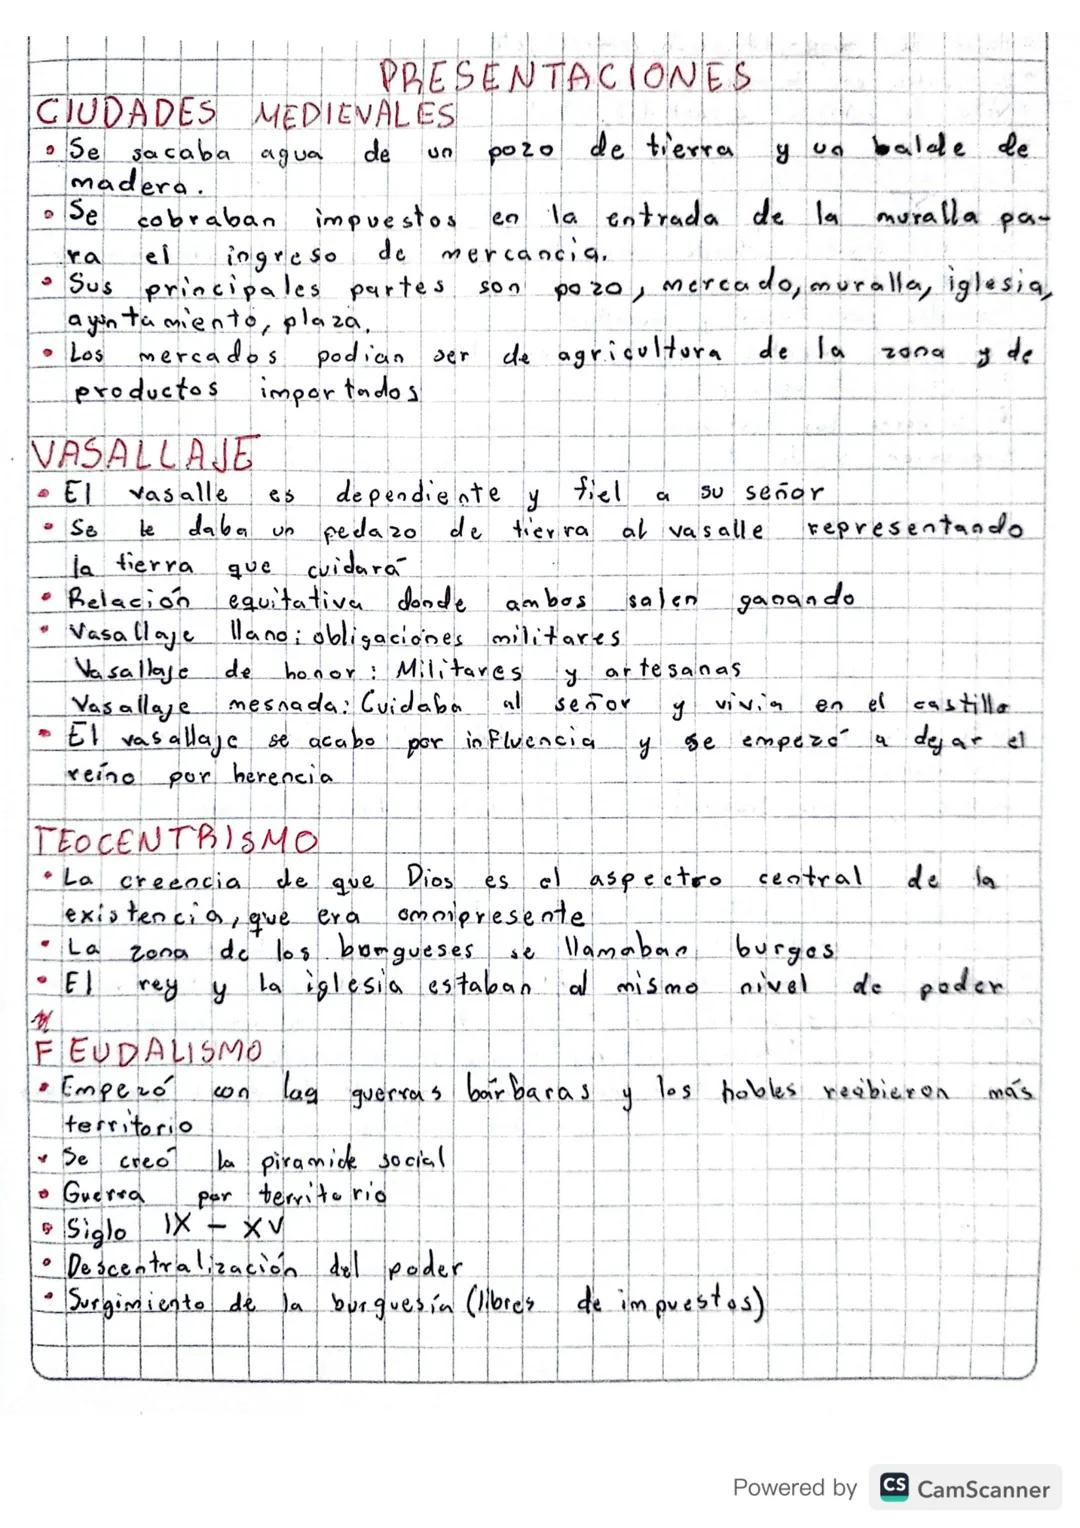 PRESENTACIONES
CIUDADES MEDIEVALES
• Se sacaba agua de un pozo de tierra y un balde de
madera.
• Se cobraban impuestos en la entrada de la muralla pa-
ra el ingreso de mercancia.
• Sus principales partes son pozo, mercado, muralla, iglesia,
ayuntamiento, plaza.
• Los mercados podian ser de agricultura de la zona y de
productos importados
VASALLAJE
• El vasalle es dependiente y fiel a su señor
• Se le daba un pedazo de tierra al vasalle representando
la tierra que cuidará
• Relación equitativa donde ambos salen ganando
• Vasallaje llano: obligaciones militares
Vasallaje de honor: Militares y artesanas
Vasallaje mesnada: Cuidaba al señor y vivia en el castillo
• El vasallaje se acabo por influencia y se empezó a dejar el
reino por herencia
TEOCENTRISMO
• La creencia de que Dios es el aspectro central de la
existencia, que era omnipresente
• La zona de los borgueses se llamaban burgos
• El rey y la iglesia estaban al mismo nivel de poder
FEUDALISMO
• Empezó con las guerras bárbaras y los nobles recibieron más
territorio
• Se creó la piramide social
• Guerra por territorio
• Siglo IX - XV
• Descentralización del poder
• Surgimiento de la burguesía (libres de impuestos)
Powered by CS CamScanner